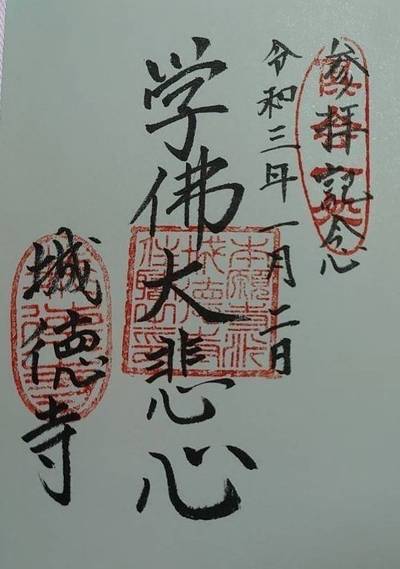 参拝記念
令和三年一月二日
学佛大悲心
城徳寺